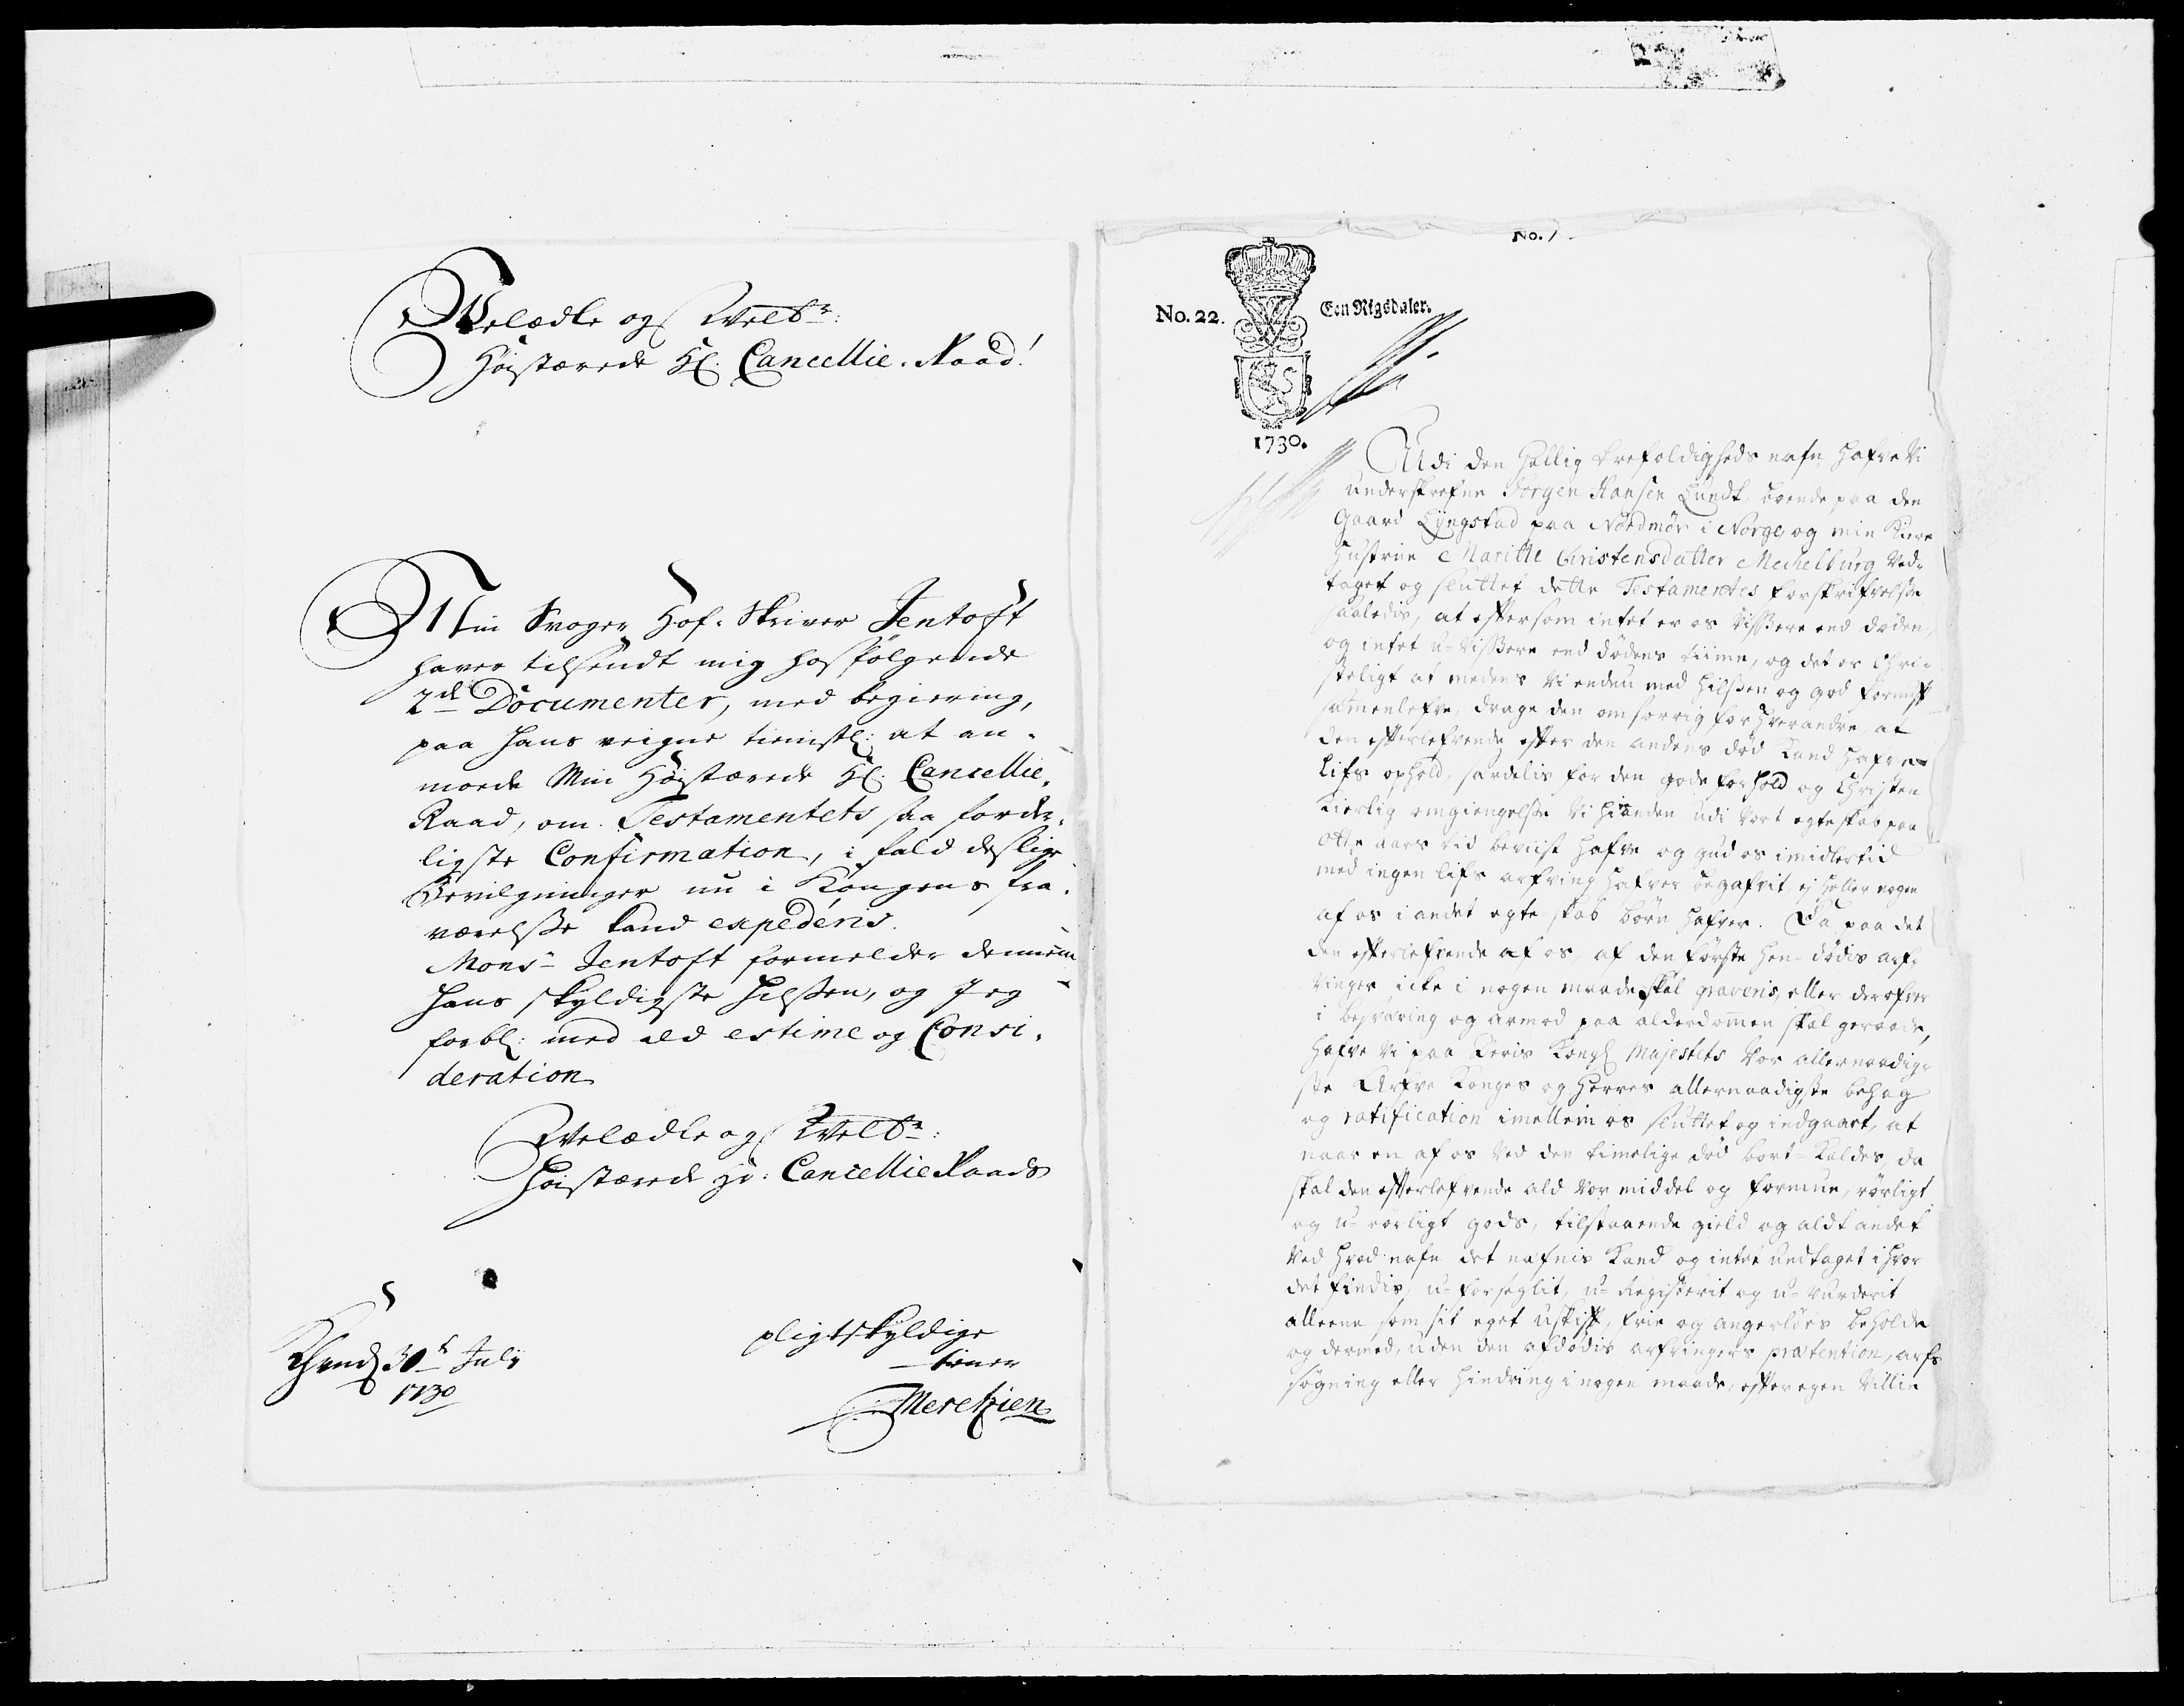 Velædle og Velbr:
Høistærede Hr. Cancellie-Raad!
Min Svoger Hof-Skriver Jentoft
haver tilsendt mig hosfølgende
2de Documenter, med begiering,
paa hans veigne tienstl: at an-
mode Min Høistærede Hr. Cancellie-
Raad, om Testamentets saa forder-
ligste Confirmation, i fald deslige
Bevilgninger nu i Kongens fra-
værelsse kand expederis.
Monsr Jentoft formelder demmem
hans skyldigste hilssen, og Jeg
forbl: med ald estime og Consi-
deration
Velædle og Velbr:
Høistærede Hr: Cancellie Raads
pligtskyldige
tiener
Meretzien
30te July
1730
No. 1.
No. 22.
Een Rigsdaler.
1730.
Udi den Hellig trefoldigheds nafn hafve Vi
underskrefne Jorgen Hansen Lundt, boende paa den
Gaard Lÿngstad paa Nordmør i Norge, og min Kiere
Hustrue Maritte Christensdatter Mechelburg Ved-
taget og sluttet dette Testamentes forskrifvelsse
saaledis, at effter som intet er os Vissere end døden,
og intet u-Vissere end dødens tiime, og det er Chri-
steligt at medens Vi endnu med hilssen og god fornufft
sammenlefve, drage den omsorrig for hverandre, at
den effterlefvende effter den andens død kand hafve
Lifs ophold, særdelis for den gode forhold og Christen
Kierlig omgiengelsse Vi hianden udi Vort egteskab paa
otte aars tid beviist hafve, og gud os imidlertid
med ingen lifs arfving hafver begafvit, ej heller nogen
af os i andet egte-skab børn hafver. Da paa det
den effterlefvende af os, af den første hen-dødis arf-
vinger icke i nogen maade skal graveris, eller derofver
i besværing og armod paa alderdommen skal geraade,
hafve Vi paa Deris Kongl Majestets Vor allernaadig-
ste Arfve Konges og Herres allernaadigste behag
og ratification imellem os sluttet og indgaaet, at
naar en af os Ved den timelige død bort-kaldes, da
skal den effterlefvende ald Vor middel og formue, rørligt
og u-rørligt gods, tilstaaende gield og aldt andet
Ved hvad nafn det nefnis kand og intet undtaget i hvor
det findis, u-forseglit, u-Registerit og u-Vurderit
alleene som sit eget uskifft, frie og angerløs beholde
og dermed, uden den afdødis arfvingers prætention, arfs
søgning eller hindring i nogen maade, effter egen Villie